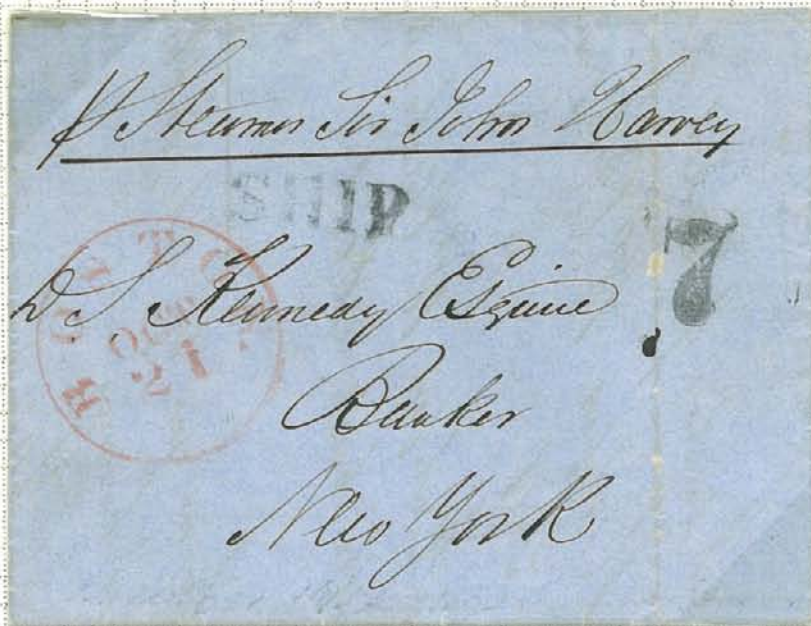 p Steamer Sir John Harvey
SHIP
7
BOSTON
21
D S Kennedy Esquire
Banker
New York